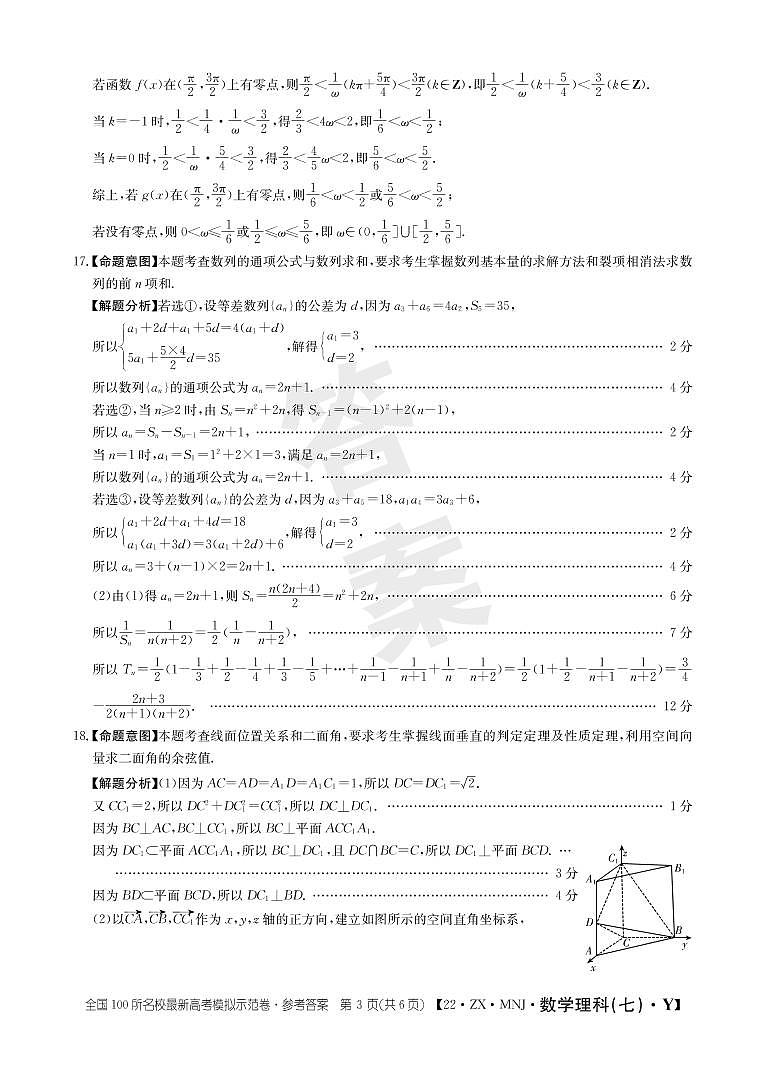 若函数 f(x)在(π/2,3π/2)上有零点,则π/2<1/ω(kπ+5π/4)<3π/2(k∈Z),即1/2<1/ω(k+5/4)<3/2(k∈Z).
当 k=-1 时,1/2<1/4·1/ω<3/2,得2/3<4ω<2,即1/6<ω<1/2;
当 k=0 时,1/2<1/ω·5/4<3/2,得2/3<4/5ω<2,即5/6<ω<5/2.
综上,若 g(x)在(π/2,3π/2)上有零点,则1/6<ω<1/2或5/6<ω<5/2;
若没有零点,则 0<ω≤1/6或1/2≤ω≤5/6,即 ω∈(0,1/6]∪[1/2,5/6].
17.【命题意图】本题考查数列的通项公式与数列求和,要求考生掌握数列基本量的求解方法和裂项相消法求数
列的前 n 项和.
【解题分析】若选①,设等差数列{aₙ}的公差为 d,因为 a₃+a₆=4a₂,S₅=35,
所以{a₁+2d+a₁+5d=4(a₁+d) 5a₁+5×4/2 d=35,解得{a₁=3 d=2, …… 2 分
所以数列{aₙ}的通项公式为 aₙ=2n+1. …… 4 分
若选②,当 n≥2 时,由 Sₙ=n²+2n,得 Sₙ₋₁=(n-1)²+2(n-1),
所以 aₙ=Sₙ-Sₙ₋₁=2n+1, …… 2 分
当 n=1 时,a₁=S₁=1²+2×1=3,满足 aₙ=2n+1,
所以数列{aₙ}的通项公式为 aₙ=2n+1. …… 4 分
若选③,设等差数列{aₙ}的公差为 d,因为 a₃+a₅=18,a₁a₄=3a₃+6,
所以{a₁+2d+a₁+4d=18 a₁(a₁+3d)=3(a₁+2d)+6,解得{a₁=3 d=2, …… 2 分
所以 aₙ=3+(n-1)×2=2n+1. …… 4 分
(2)由(1)得 aₙ=2n+1,则 Sₙ=n(2n+4)/2=n²+2n, …… 6 分
所以1/Sₙ=1/n(n+2)=1/2(1/n-1/n+2), …… 7 分
所以 Tₙ=1/2(1-1/3+1/2-1/4+1/3-1/5+…+1/n-1-1/n+1+1/n-1/n+2)=1/2(1+1/2-1/n+1-1/n+2)=3/4
-2n+3/2(n+1)(n+2). …… 12 分
18.【命题意图】本题考查线面位置关系和二面角,要求考生掌握线面垂直的判定定理及性质定理,利用空间向
量求二面角的余弦值.
【解题分析】(1)因为 AC=AD=A₁D=A₁C₁=1,所以 DC=DC₁=√2.
又 CC₁=2,所以 DC²+DC₁²=CC₁²,所以 DC⊥DC₁. …… 1 分
因为 BC⊥AC,BC⊥CC₁,所以 BC⊥平面 ACC₁A₁.
因为 DC₁⊂平面 ACC₁A₁,所以 BC⊥DC₁,且 DC∩BC=C,所以 DC₁⊥平面 BCD. …
…… 3 分
因为 BD⊂平面 BCD,所以 DC₁⊥BD. …… 4 分
(2)以CA,CB,CC₁作为 x,y,z 轴的正方向,建立如图所示的空间直角坐标系,
z
C₁
B₁
A₁
D
C
B
y
A
x
答案
全国 100 所名校最新高考模拟示范卷·参考答案 第 3 页(共 6 页) 【22·ZX·MNJ·数学理科(七)·Y】